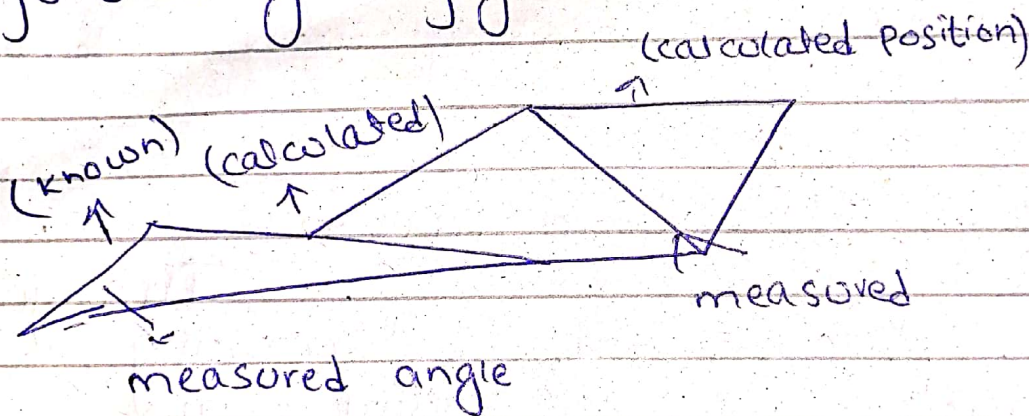 (calculated position)
(known) (calculated)
measured
measured angle